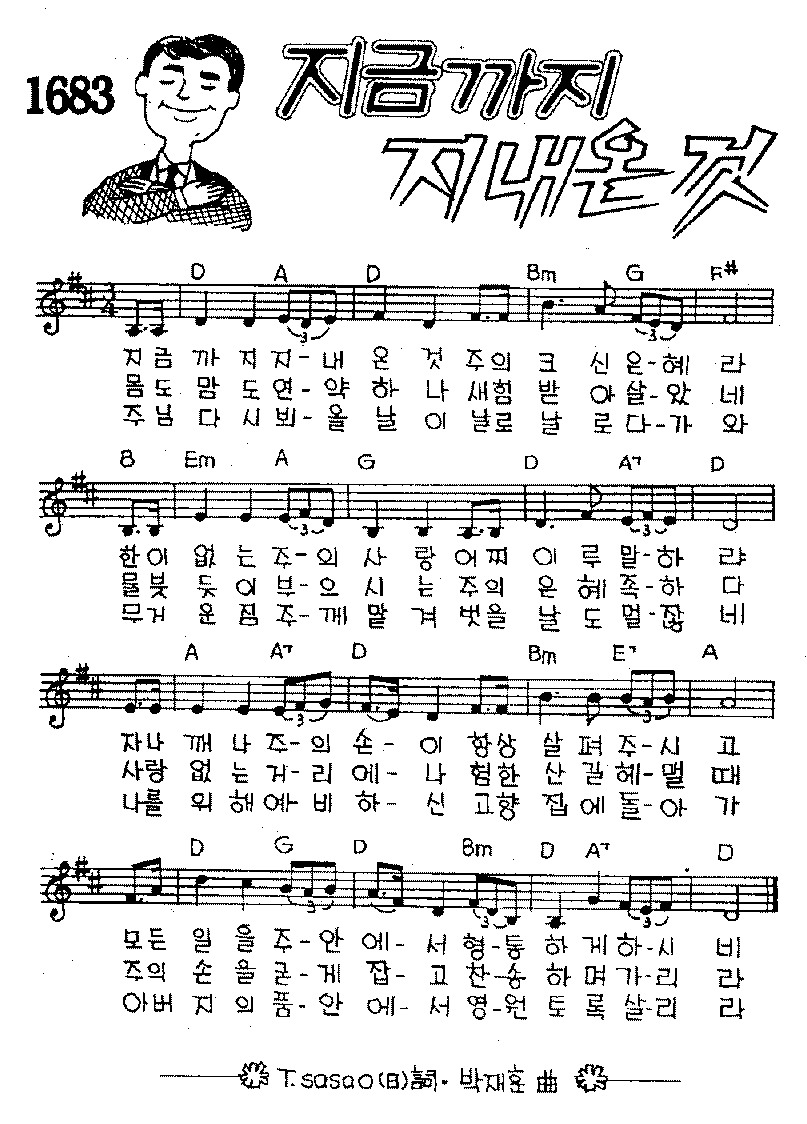 1683
지금까지
지내온 것
D A D Bm G F#
3/4
3 3
지금 까 지 지- 내 온 것 주의 크 신 은-혜 라
몸도 맘 도 연- 약 하 나 새힘 받 아 살-았 네
주님 다 시 뵈- 올 날 이 날로 날 로 다-가 와
B Em A G D A7 D
3 3
한이 없 는 주- 의 사 랑 어찌 이 루 말-하 랴
물붓 듯 이 부- 으 시 는 주의 은 혜 족-하 다
무거 운 짐 주- 께 맡 겨 벗을 날 도 멀-잖 네
A A7 D Bm E7 A
3 3
자나 깨 나 주- 의 손- 이 항상 살 펴 주-시 고
사랑 없 는 거- 리 에- 나 험한 산 길 헤-맬 때
나를 위 해 예- 비 하- 신 고향 집 에 돌-아 가
D G D Bm D A7 D
3 3 3
모든 일 을 주- 안 에- 서 형-통 하 게 하-시 네
주의 손 을 굳- 게 잡- 고 찬-송 하 며 가-리 라
아버 지 의 품- 안 에- 서 영-원 토 록 살-리 라
T. sasao(日)詞·박재훈 曲